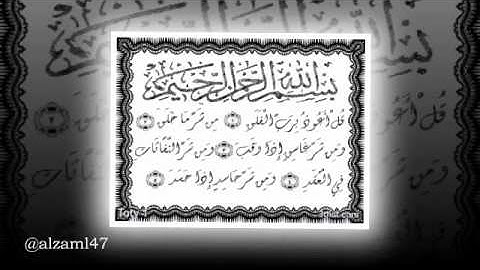 بسم الله الرحمن الرحيم
قل أعوذ برب الفلق من شر ما خلق
ومن شر غاسق إذا وقب ومن شر النفاثات
في العقد ومن شر حاسد إذا حسد
@alzaml47